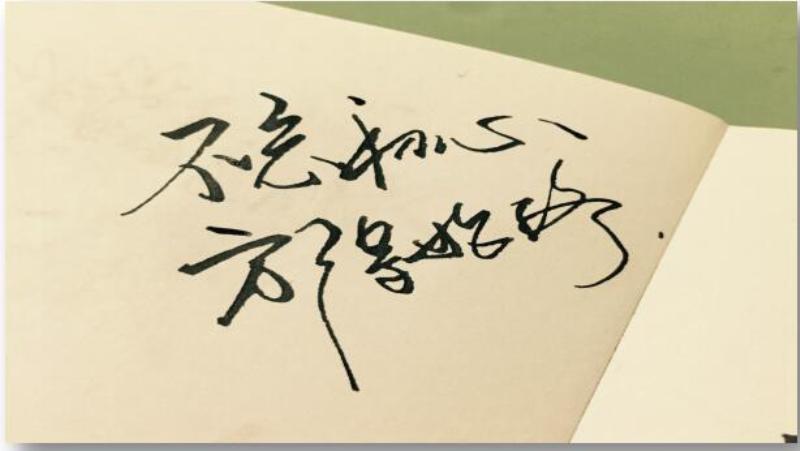 不忘初心、
方得始终.